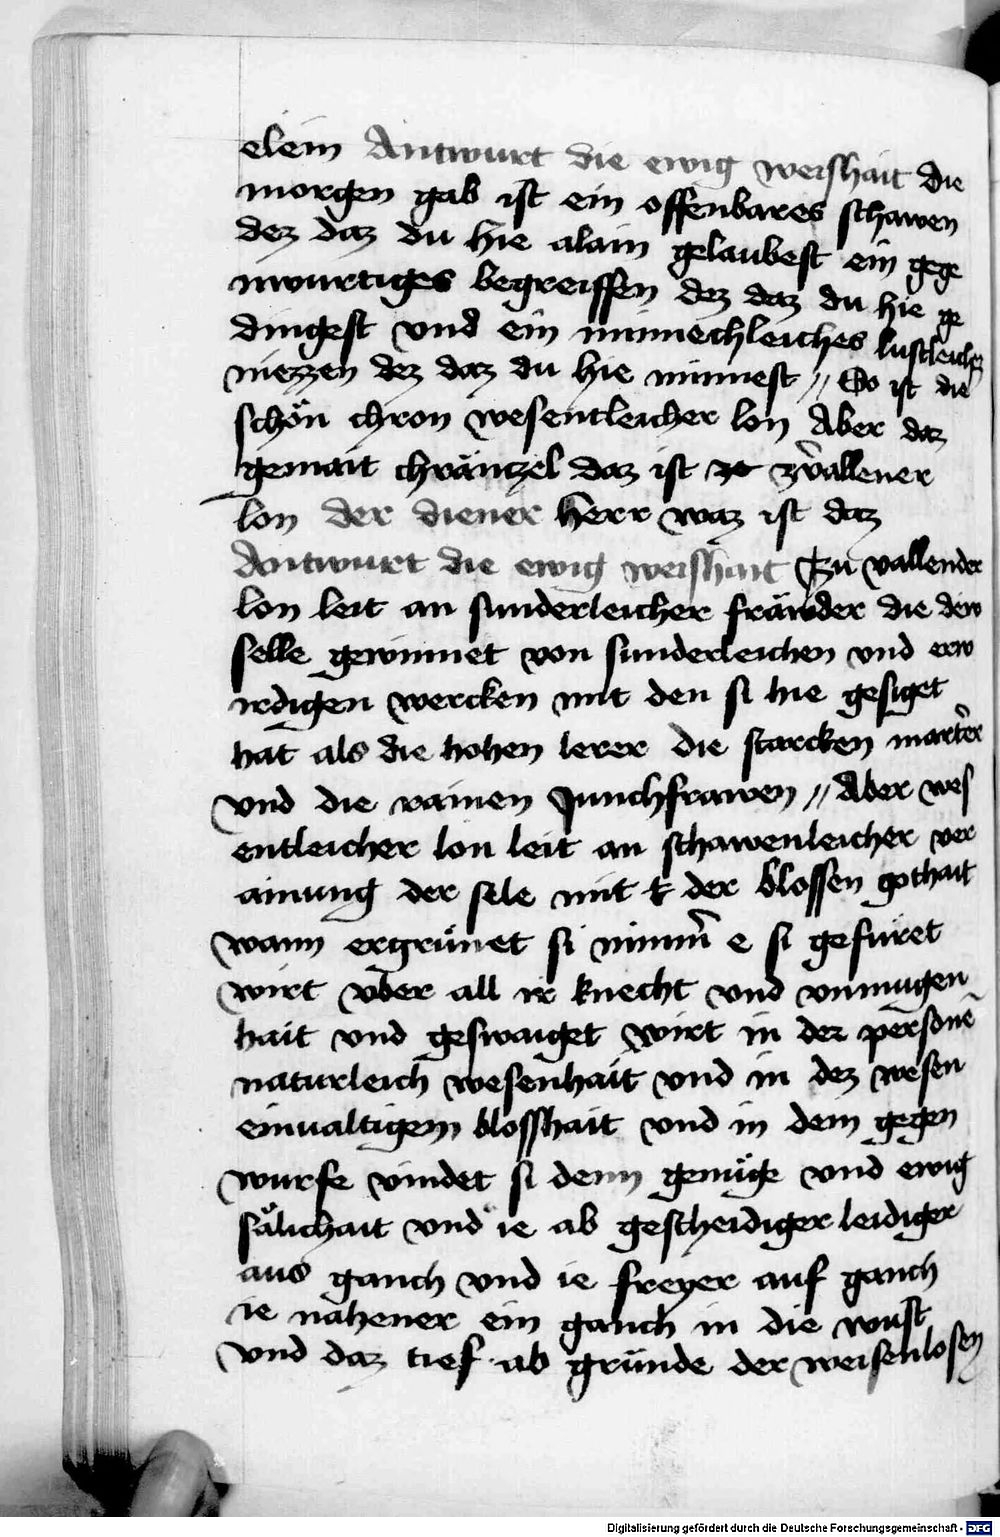 elein Antwurt die ewig weishait die
morgen gab ist ein offenbares schawen
dez daz du hie alain gelaubest ein gege
nwurtiges begreiffen dez daz du hie ge
dingest vnd ein minnechleiches lustleichz
niezzen dez daz du hie minnest // So ist die
schön chron wesentleicher lon Aber daz
gemait chräntzel daz ist ze zůvallener
lon der diener herr waz ist daz
Antwurt die ewig weishait Zu vallender
lon leit an sunderleicher fräwder die dew
selle gewinnet von sunderleichen vnd erw
irdigen wercken mit den si hie gesiget
hat als die hohen lerer die starcken martrer
vnd die rainen Junchfrawen // Aber wes
entleicher lon leit an schawenleicher ver
ainung der sele mit t der blossen gothait
wann ergrünet si nimm̃ e si gefüret
wirt vber all ir knecht vnd vnmugen
hait vnd geswaiget wirt in der personē
naturleich wesenhait vnd in dez wesen
einualtigem blosshait vnd in dem gegen
wurfe vindet si denn genüge vnd ewig
sälichait vnd ie ab gescheidiger leidiger
aus ganch vnd ie freyer auf ganch
ie nähener ein ganch in die wüst
vnd daz tief ab gründe der weisenlosen
Digitalisierung gefördert durch die Deutsche Forschungsgemeinschaft - DFG